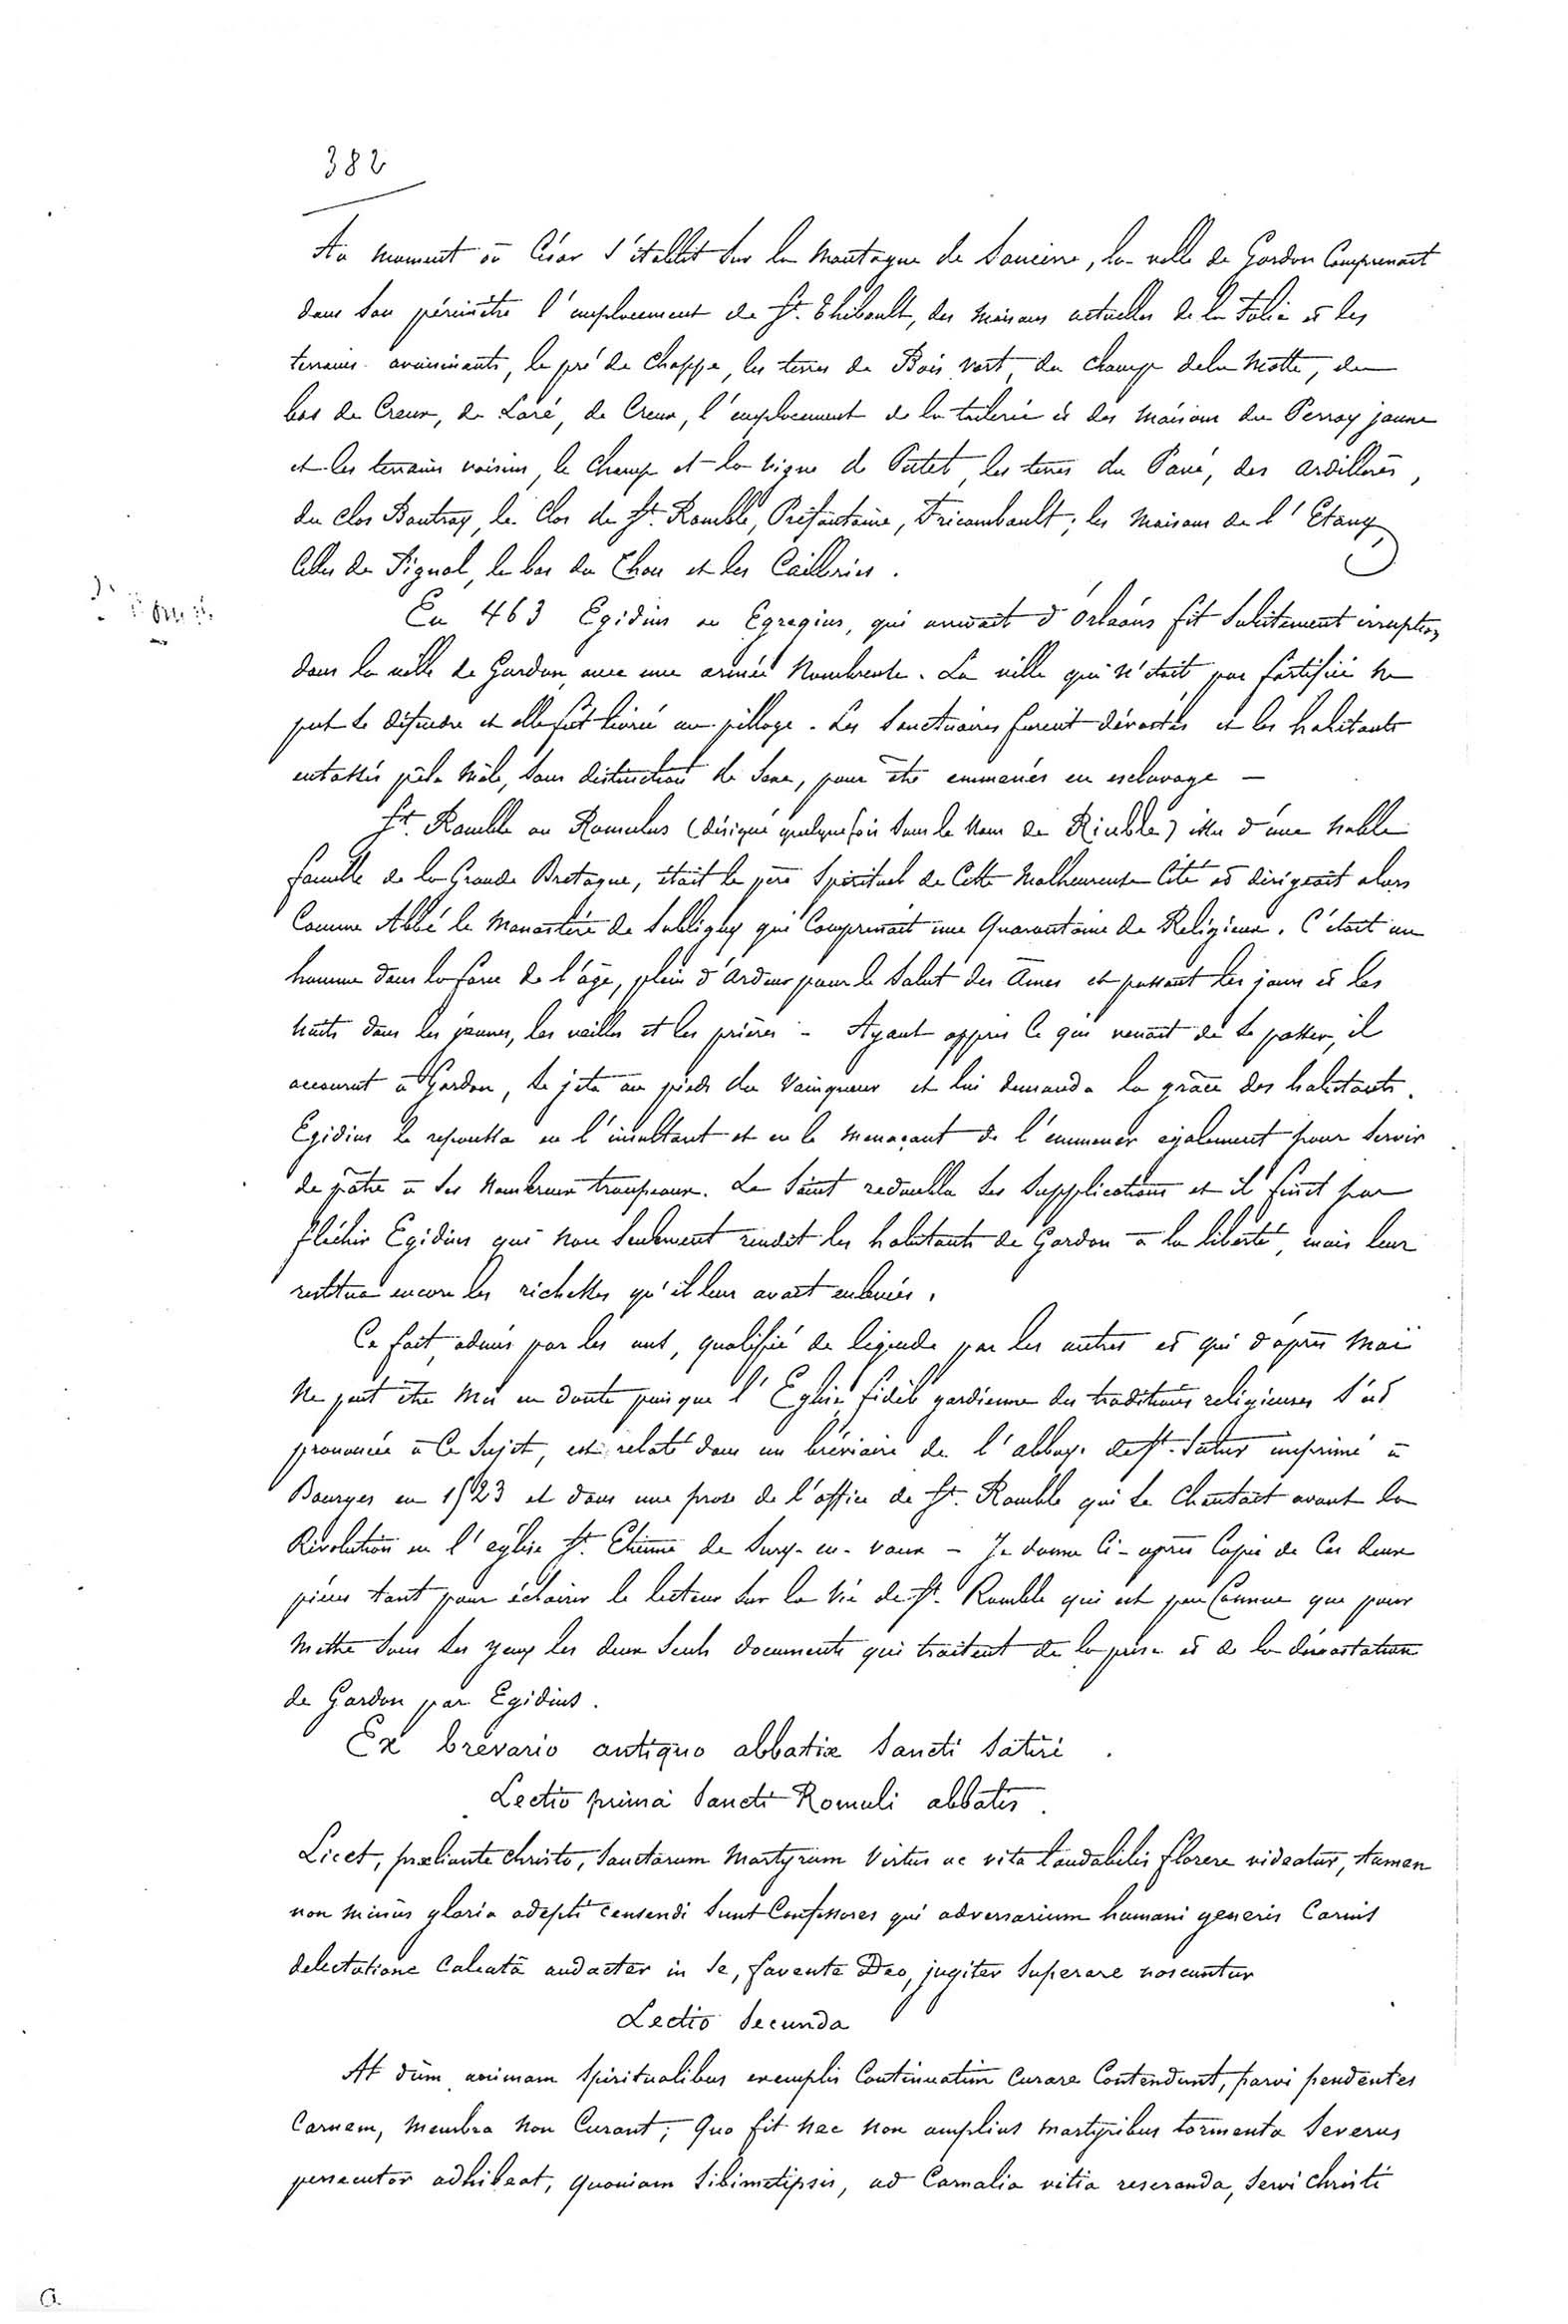 382
Au moment où César s'établit sur la Montagne de Sancerre, la ville de Gordon Comprenait
dans son périmètre l'emplacement de St. Thibault, des maisons actuelles de la Folie et les
terrains avoisinants, le pré de Chappe, les terres de Bois vert, du champ dela Motte, du
bas de Creux, de Laré, de Creux, l'emplacement de la tuilerie et des Maisons du Perroy jaune
et les terrains voisins, le Champ et la Vigne de Putet, les terres du Pavé, des Ardillères,
du clos Boutray, le Clos de St. Romble, Préfontaine, Fricambault; les Maisons de l'Etang,
Celles de Pignol, le bas du Chou et les Cailleries.
En 463 Egidius ou Egregius, qui arrivait d'Orléans fit Subitement irruption
dans la ville de Gordon, avec une armée Nombreuse. La ville qui n'était pas fortifiée ne
put se défendre et elle fut livrée au pillage. Les Sanctuaires furent dévastés et les habitants
entassés pêle mêle, sans distinction de Sexe, pour être emmenés en esclavage —
St. Romble ou Romulus (désigné quelquefois sous le Nom de Riuble) issu d'une noble
famille de la Grande Bretagne, était le père Spirituel de Cette Malheureuse Cité et dirigeait alors
Comme Abbé le Monastère de Subligny qui Comprenait une Quarantaine de Religieux. C'était un
homme dans la force de l'âge, plein d'Ardeur pour le Salut des âmes et passant les jours et les
nuits dans les jeunes, les veilles et les prières — Ayant appris Ce qui venait de se passer, il
accourut à Gordon, se jeta au pieds du Vainqueur et lui demanda la grâce des habitants.
Egidius le repoussa en l'insultant et en le menaçant de l'emmener également pour servir
de pâtre à ses Nombreux troupeaux. Le Saint redoubla Ses Supplications et il finit par
fléchir Egidius qui Non Seulement rendit les habitants de Gordon à la liberté, mais leur
restitua encore les richesses qu'il leur avait enlevées.
Ce fait, admis par les uns, qualifié de légende par les autres et qui d'après Moi
Ne peut être Mis en doute puisque l'Eglise, fidèle gardienne des traditions religieuses s'est
prononcée à Ce Sujet, est relaté dans un bréviaire de l'abbaye de St. Satur imprimé à
Bourges en 1523 et dans une prose de l'office de St. Romble qui se Chantait avant la
Révolution en l'église St. Etienne de Sury-en-vaux — Je donne Ci-après Copie de Ces deux
pièces tant pour éclairer le lecteur Sur la Vie de St. Romble qui est peu Connue que pour
Mettre Sous Ses yeux les deux Seuls documents qui traitent de la prise et de la dévastation
de Gordon par Egidius.
Ex brevario antiquo abbatiæ Sancti Satiri.
Lectio prima Sancti Romuli abbatis.
Licet, præliante Christo, Sanctorum Martyrum Virtus ac vita laudabilis florere videatur, tamen
non minùs gloria adepti censendi Sunt Confessores qui adversarium humani generis Carnis
delectatione Calcatâ audacter in Se, favente Deo, jugiter Superare noscuntur
Lectio Secunda
At dùm animam Spiritualibus exemplis Continuatim Curare Contendunt, parvi pendentes
Carnem, Membra Non Curant; Quo fit Nec Non amplius Martyribus tormenta Severus
persecutor adhibeat, quoniam Sibimetipsis, ad Carnalia vitia reseranda, Servi Christi